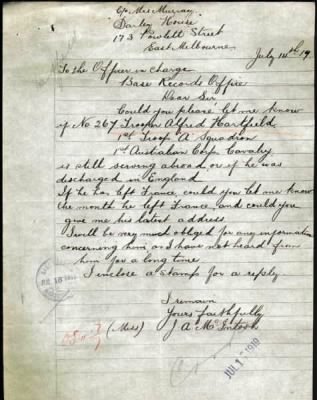 C/o Mrs Murray
Darley House
173 Powlett Street
East Melbourne
July 14th 19
To the Officer in Charge
Base Records Office
Dear Sir
Could you please let me know
if No 267 Trooper Alfred Hartfield
1st Troop A Squadron
1st Australian Corp Cavalry
is still serving abroad, or if he was
discharged in England
If he has left France, could you let me know
the month he left France, and could you
give me his latest address
I will be very much obliged for any information
concerning him as I have not heard from
him for a long time
I inclose a stamp for a reply.
I remain
Yours faithfully
(Miss) J A McIntosh
JUL 1 1919